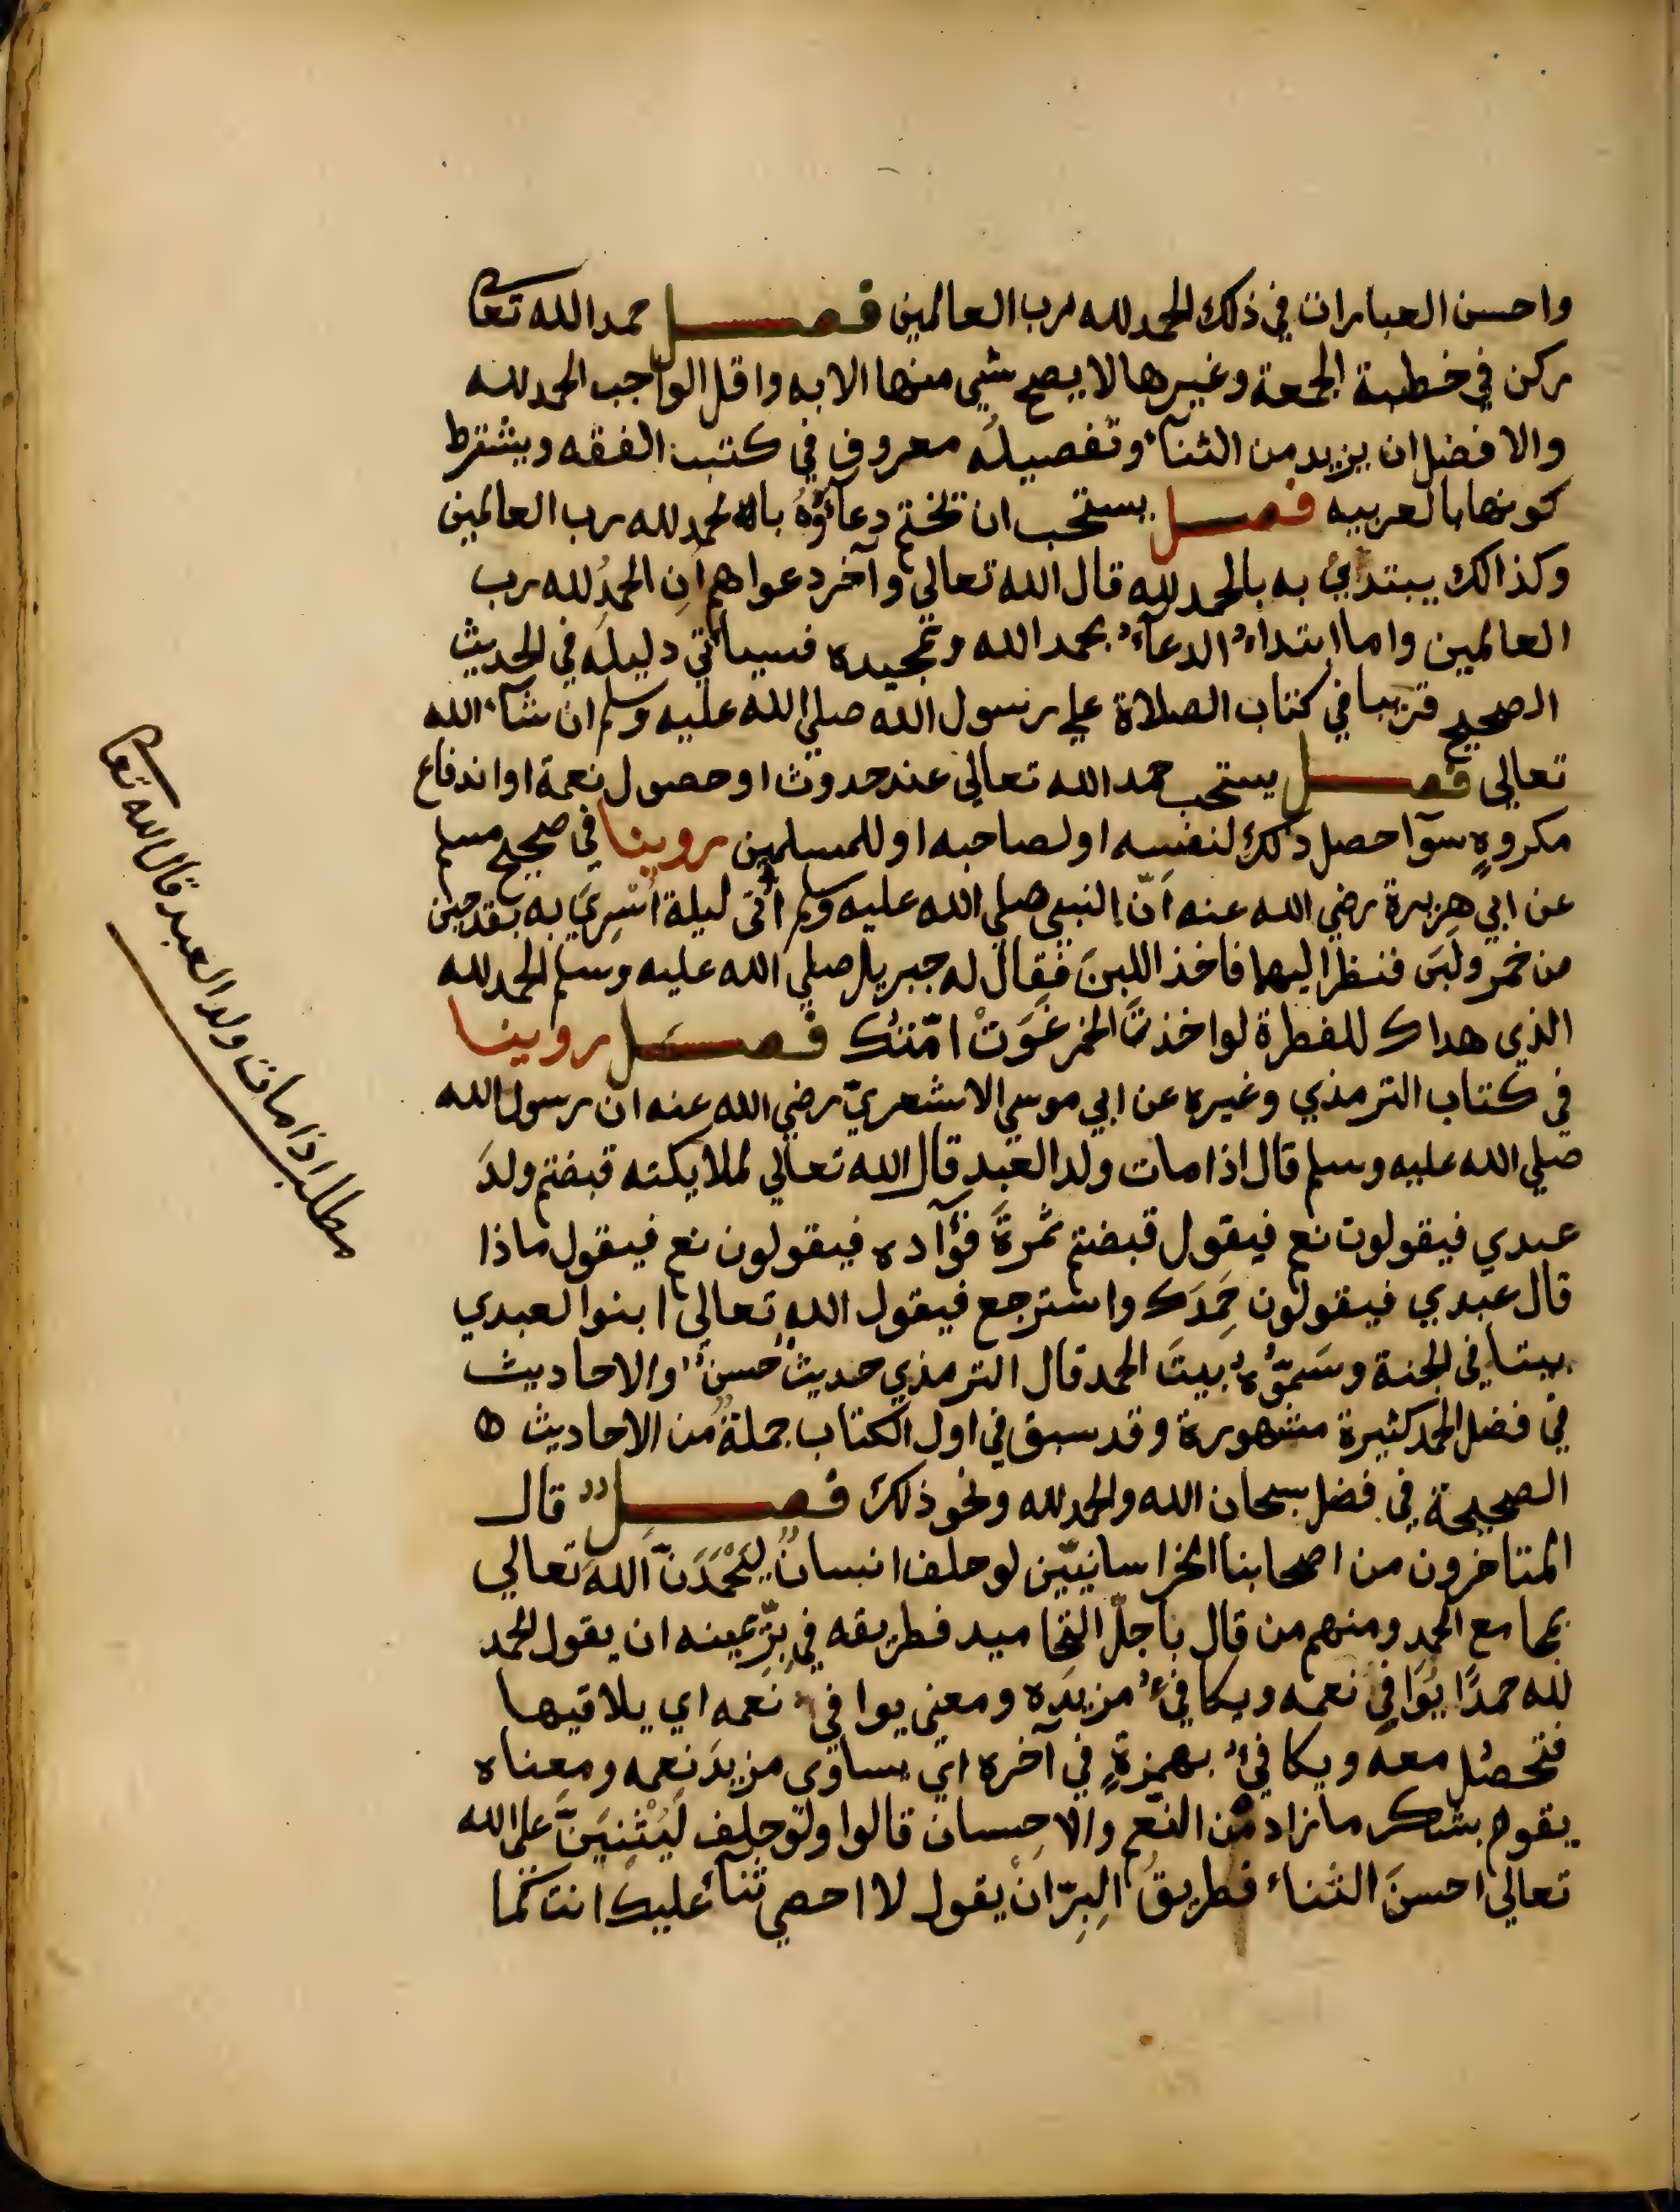 واحسن العبارات في ذلك الحمد لله رب العالمين فصل حمد الله تعالى
ركن في خطبة الجمعة وغيرها لا يصح شي منها الا به واقل الواجب الحمد لله
والافضل ان يزيد من الثنآء وتفصيله معروف في كتب الفقه ويشترط
كونها بالعربيه فصل يستحب ان تختم دعآؤه بالحمد لله رب العالمين
وكذالك يبتدئ به بالحمد لله قال الله تعالى وآخر دعواهم أن الحمدُ لله رب
العالمين واما ابتداءُ الدعآء بحمد الله وتمجيده فسيأتي دليله في الحديث
الصحيح قريبا في كتاب الصلاة على رسول الله صلي الله عليه وسلم ان شآء الله
تعالى فصل يستحب حمد الله تعالى عند حدوث او حصول نعمة او اندفاع
مكروهٍ سوآ حصل ذلك لنفسه او لصاحبه او للمسلمين روينا في صحيح مسلم
عن ابي هريرة رضي الله عنه أنّ النبي صلي الله عليه وسلم أُتى ليلة أُسْرِيَ به بقدحين
من خمر ولبن فنظر اليهما فاخذ اللبنَ فقال له جبريل صلي الله عليه وسلم الحمد لله
الذي هداك للفطرة لو اخذتَ الخمر غَوَتْ امّتك فصل روينا
في كتاب الترمذي وغيره عن ابي موسي الاشعريّ رضي الله عنه ان رسول الله
صلي الله عليه وسلم قال اذا مات ولد العبد قال الله تعالي لملايكته قبضتم ولدَ
عبدي فيقولون نعم فيقول قبضتم ثمرةَ فؤآده فيقولون نعم فيقول ماذا
قال عبدي فيقولون حَمِدَك واسترجع فيقول الله تعالى ابنوا لعبدي
بيتا في الجنة وسَمُّوْهُ بيتَ الحمد قال الترمذي حديثٌ حسنٌ والاحاديث
في فضل الحمد كثيرة مشهورة وقد سبق في اول الكتاب جملةٌ من الاحاديث
الصحيحة في فضل سبحان الله والحمد لله ونحو ذلك فصل قال
المتاخرون من اصحابنا الخراسانيّين لو حلف انسانٌ ليَحْمَدَنّ اللهَ تعالي
بمجامع الحمد ومنهم من قال باجلّ التحاميد فطريقه في بِرِّ يمينه ان يقول الحمد
لله حمدًا يُوَافِي نعمه ويكافيءُ مزيدَه ومعنى يوافيء نعمه اي يلاقيها
فتحصُل معه ويكافيءُ بهمزةٍ في آخره اي يساوى مزيدَ نعمه ومعناه
يقوم بشكر ما زاد من النّعم والاحِسان قالوا ولو حلف لَيُثْنِيَنَّ على الله
تعالى احسنَ الثناء فطريقُ البِرّ ان يقول لا احصي ثنآءً عليك انت كما
مطلب اذا مات ولد العبد قال الله تعالى